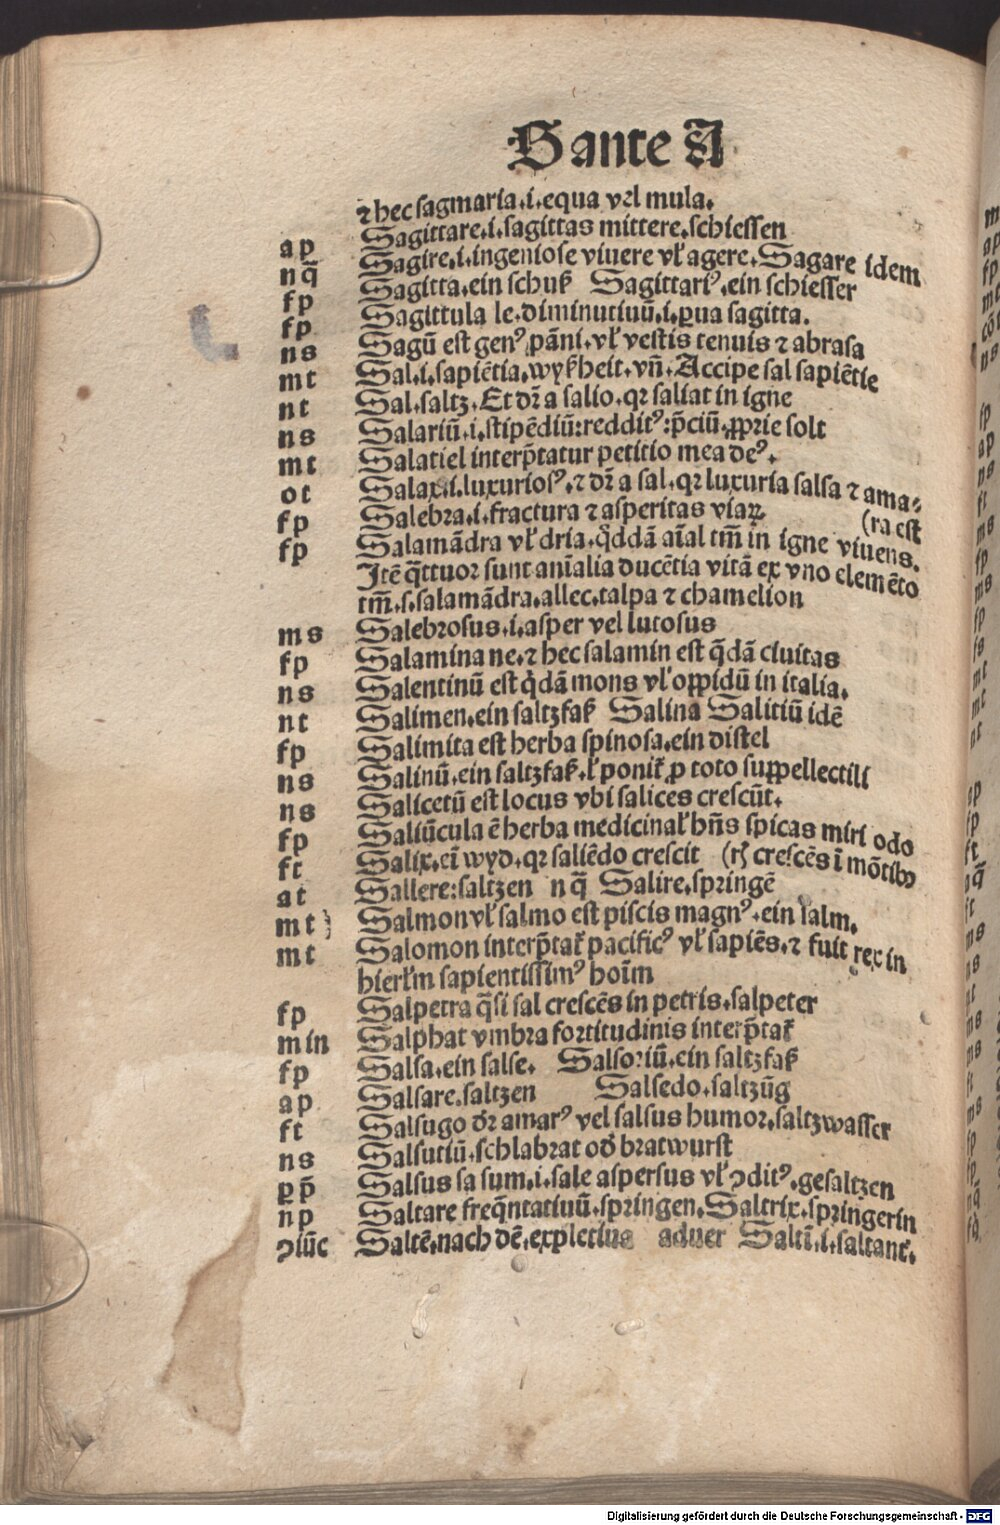 S ante A
⁊ hec sagmaria.i.equa vel mula.
ap Sagittare.i.sagittas mittere.schiessen
nq̄ Sagire.i.ingeniose viuere vl̕ agere. Sagare idem
fp Sagitta.ein schuß Sagittariꝰ.ein schiesser
fp Sagittula le.diminutiuū.i.ꝑua sagitta.
ns Sagū est genꝰ pāni.vl̕ vestis tenuis ⁊ abrasa
mt Sal.i.sapiētia.wyßheit.vn̄.Accipe sal sapiētie
nt Sal.saltz.Et dr̄ a salio.qꝛ saliat in igne
ns Salariū.i.stipēdiū:redditꝰ:p̄ciū.ꝓprie solt
mt Salatiel interp̄tatur petitio mea deꝰ.
ot Salax.i.luxuriosꝰ.⁊ dr̄ a sal.qꝛ luxuria salsa ⁊ ama-
fp Salebra.i.fractura ⁊ asperitas viaꝝ (ra est
fp Salamādra vl̕ dria.q̄ddā aīal tm̄ in igne viuens.
Itē q̄ttuor sunt anīalia ducētia vitā ex vno elemēto
tm̄.s.salamādra.allec.talpa ⁊ chamelion
ms Salebrosus.i.asper vel lutosus
fp Salamina ne.⁊ hec salamin est q̄dā ciuitas
ns Salentinū est q̄dā mons vl̕ oppidū in italia.
nt Salimen.ein saltzfaß Salina Salitiū idē
fp Salimita est herba spinosa.ein distel
ns Salinū.ein saltzfaß.l̕ ponit̕ ꝓ toto suppellectili
ns Salicetū est locus vbi salices crescūt.
fp Saliūcula ē herba medicinal̕ hn̄s spicas miri odo
ft Salix.eī wyd.qꝛ saliēdo crescit (rꝭ crescēs ī mōtibꝰ
at Sallere:saltzen nq̄ Salire.springē
mt Salmon vl̕ salmo est piscis magnꝰ.ein salm.
mt Salomon interp̄tat̕ pacificꝰ vl̕ sapiēs.⁊ fuit rex in
hierl̕m sapientissimꝰ hoīm
fp Salpetra q̄si sal crescēs in petris.salpeter
min Salphat vmbra fortitudinis interp̄tat̕
fp Salsa.ein salse. Salsoriū.ein saltzfaß
ap Salsare.saltzen Salsedo.saltzūg
ft Salsugo dr̄ amarꝰ vel salsus humor.saltzwasser
ns Salsutiū.schlabrat od̕ bratwurst
ꝑp̄ Salsus sa sum.i.sale aspersus vl̕ ꝯditꝰ.gesaltzen
np Saltare freq̄ntatiuū.springen.Saltrix.springerin
ꝯiūc Saltē.nach dē.expletiua aduer Saltī.i.saltant̕.
Digitalisierung gefördert durch die Deutsche Forschungsgemeinschaft - DFG